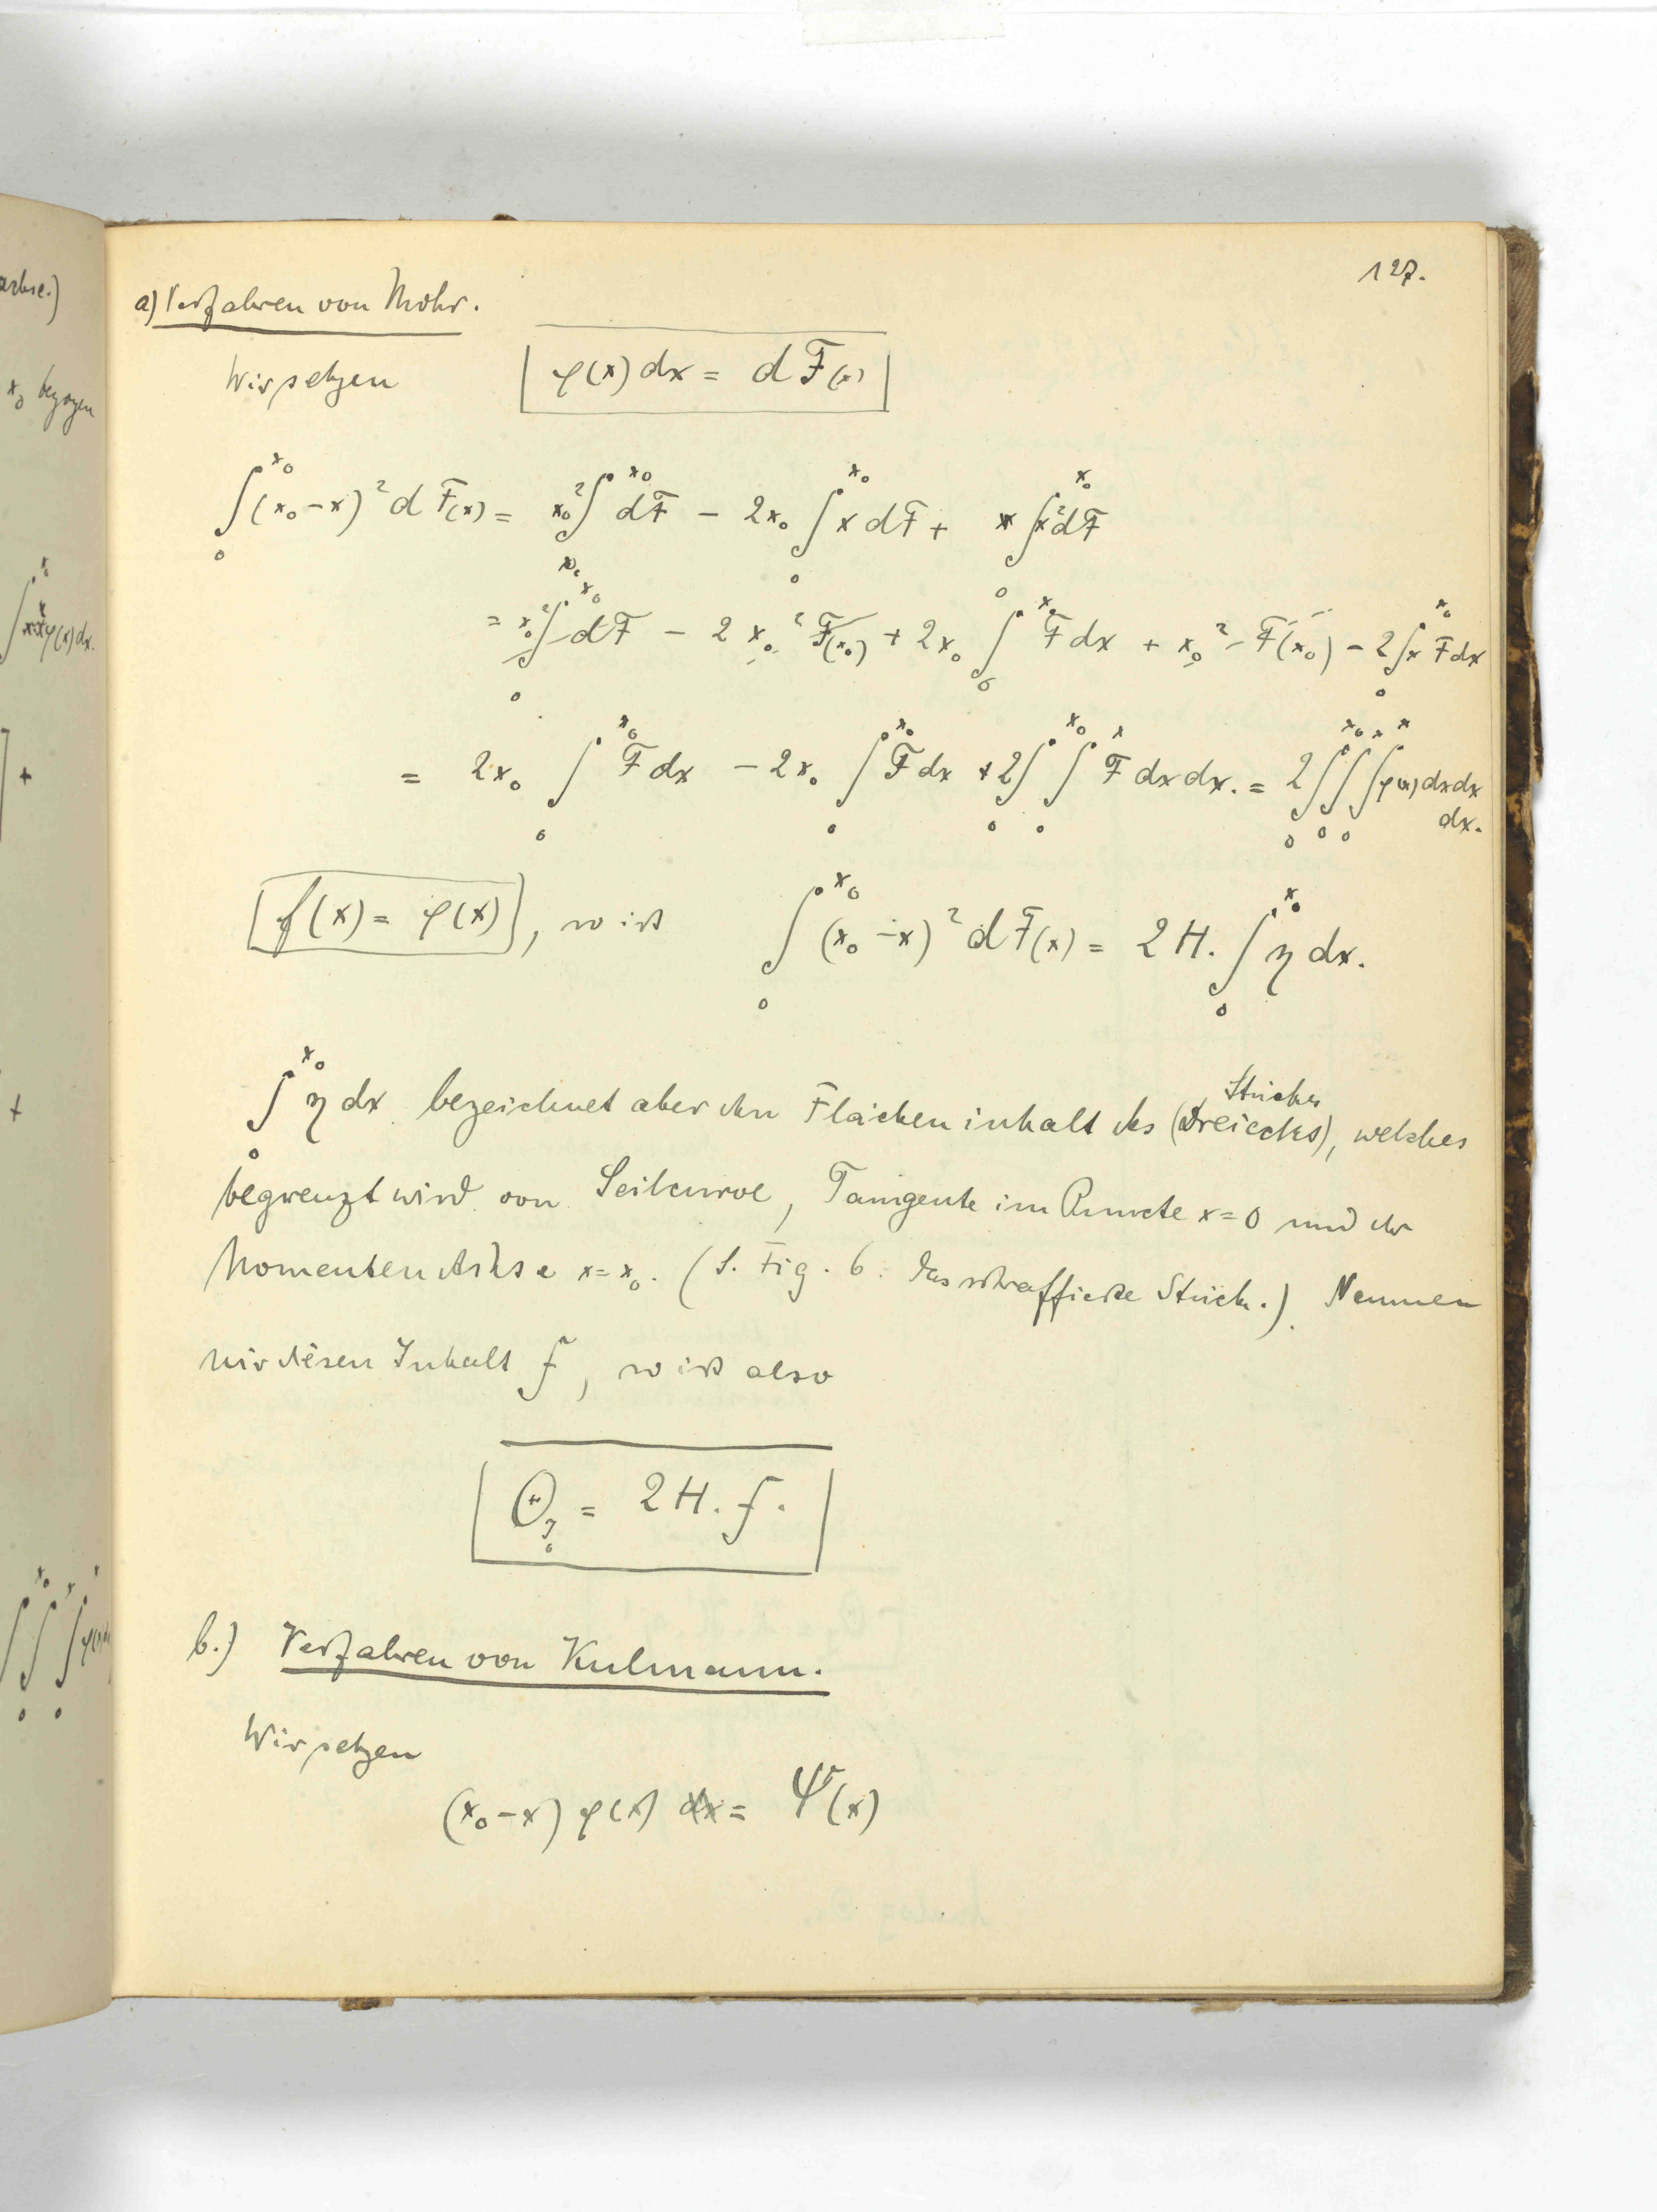 127.
a) Verfahren von Mohr.
Wir setzen φ(x) dx = d F(x)
∫₀^{x₀} (x₀ − x)² d F(x) = x₀² ∫^{x₀} dF − 2x₀ ∫₀^{x₀} x dF + ∫₀^{x₀} x² dF
= x₀² ∫₀^{x₀} dF − 2 x₀² F(x₀) + 2x₀ ∫₀^{x₀} F dx + x₀² F(x₀) − 2 ∫₀^{x₀} x F dx
= 2x₀ ∫₀^{x₀} F dx − 2x₀ ∫₀^{x₀} F dx + 2 ∫₀^{x₀} ∫₀^{x} F dx dx. = 2 ∫₀^{x₀} ∫₀^{x} ∫₀^{x} φ(x) dx dx
dx.
f(x) = φ(x) , so ist ∫₀^{x₀} (x₀ − x)² d F(x) = 2 H. ∫₀^{x₀} η dx.
∫₀^{x₀} η dx bezeichnet aber den Flächeninhalt des (Dreiecks) Stückes, welches
begrenzt wird von Seilcurve, Tangente im Puncte x = 0 und der
Momenten Achse x = x₀. (S. Fig. 6. Das schraffierte Stück.) Nennen
wir diesen Inhalt f, so ist also
Θ = 2 H. f.
b.) Verfahren von Kulmann.
Wir setzen
(x₀ − x) φ(x) dx = Ψ(x)
achse.)
x₀ bezogen
φ(x) dx.
+
+
∫₀^{x₀} ∫₀^{x} ∫^{x} φ(x)